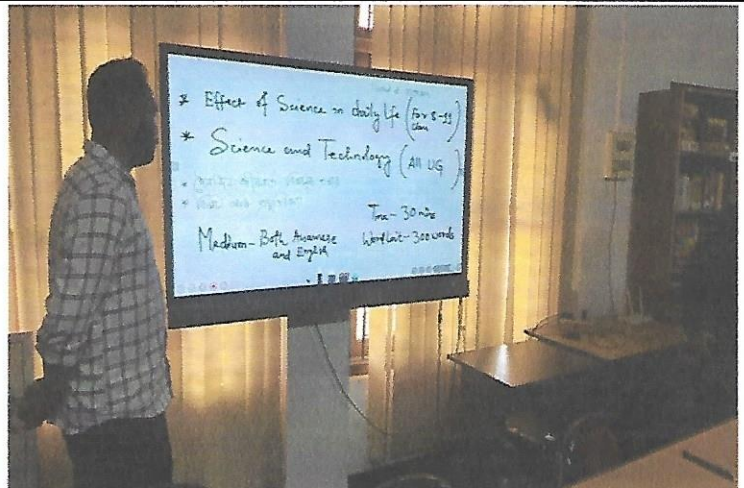 * Effect of Science in daily life (for 8-11 class)
* Science and Technology (All UG)
Time - 30 mins
Medium - Both Assamese and English
Word Limit - 300 words